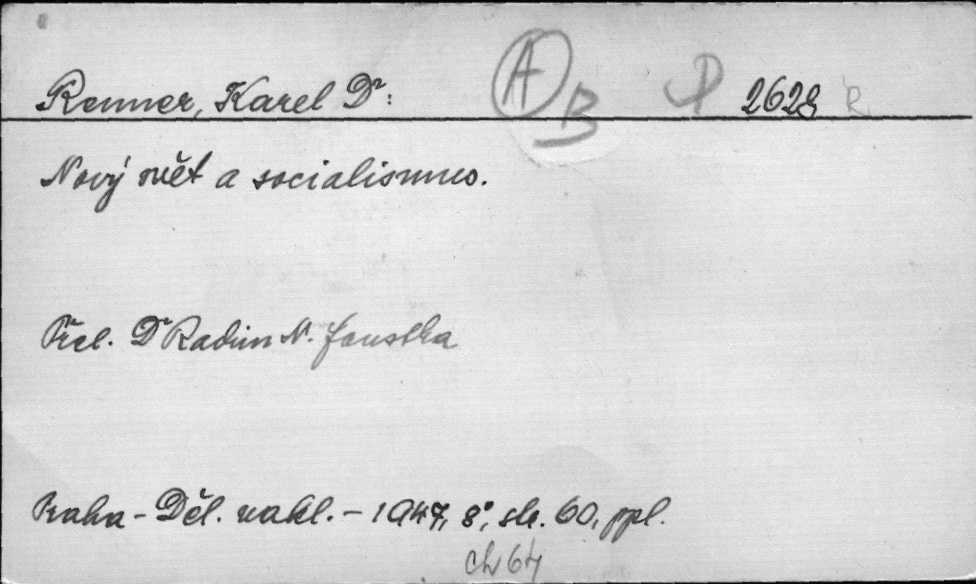 Renner, Karel Dr: A B P 2628 R
Nový svět a socialismus.
Přel. Dr Radim N. Foustka
Praha - Děl. nakl. - 1947, 8°, str. 60, ppl.
ch 64